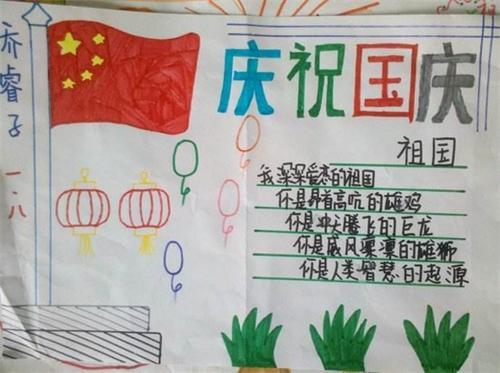 庆祝国庆
祖国
我深深爱恋的祖国
你是昂首高吭的雄鸡
你是冲天腾飞的巨龙
你是威风凛凛的雄狮
你是人类智慧的起源
乔睿子 一.八